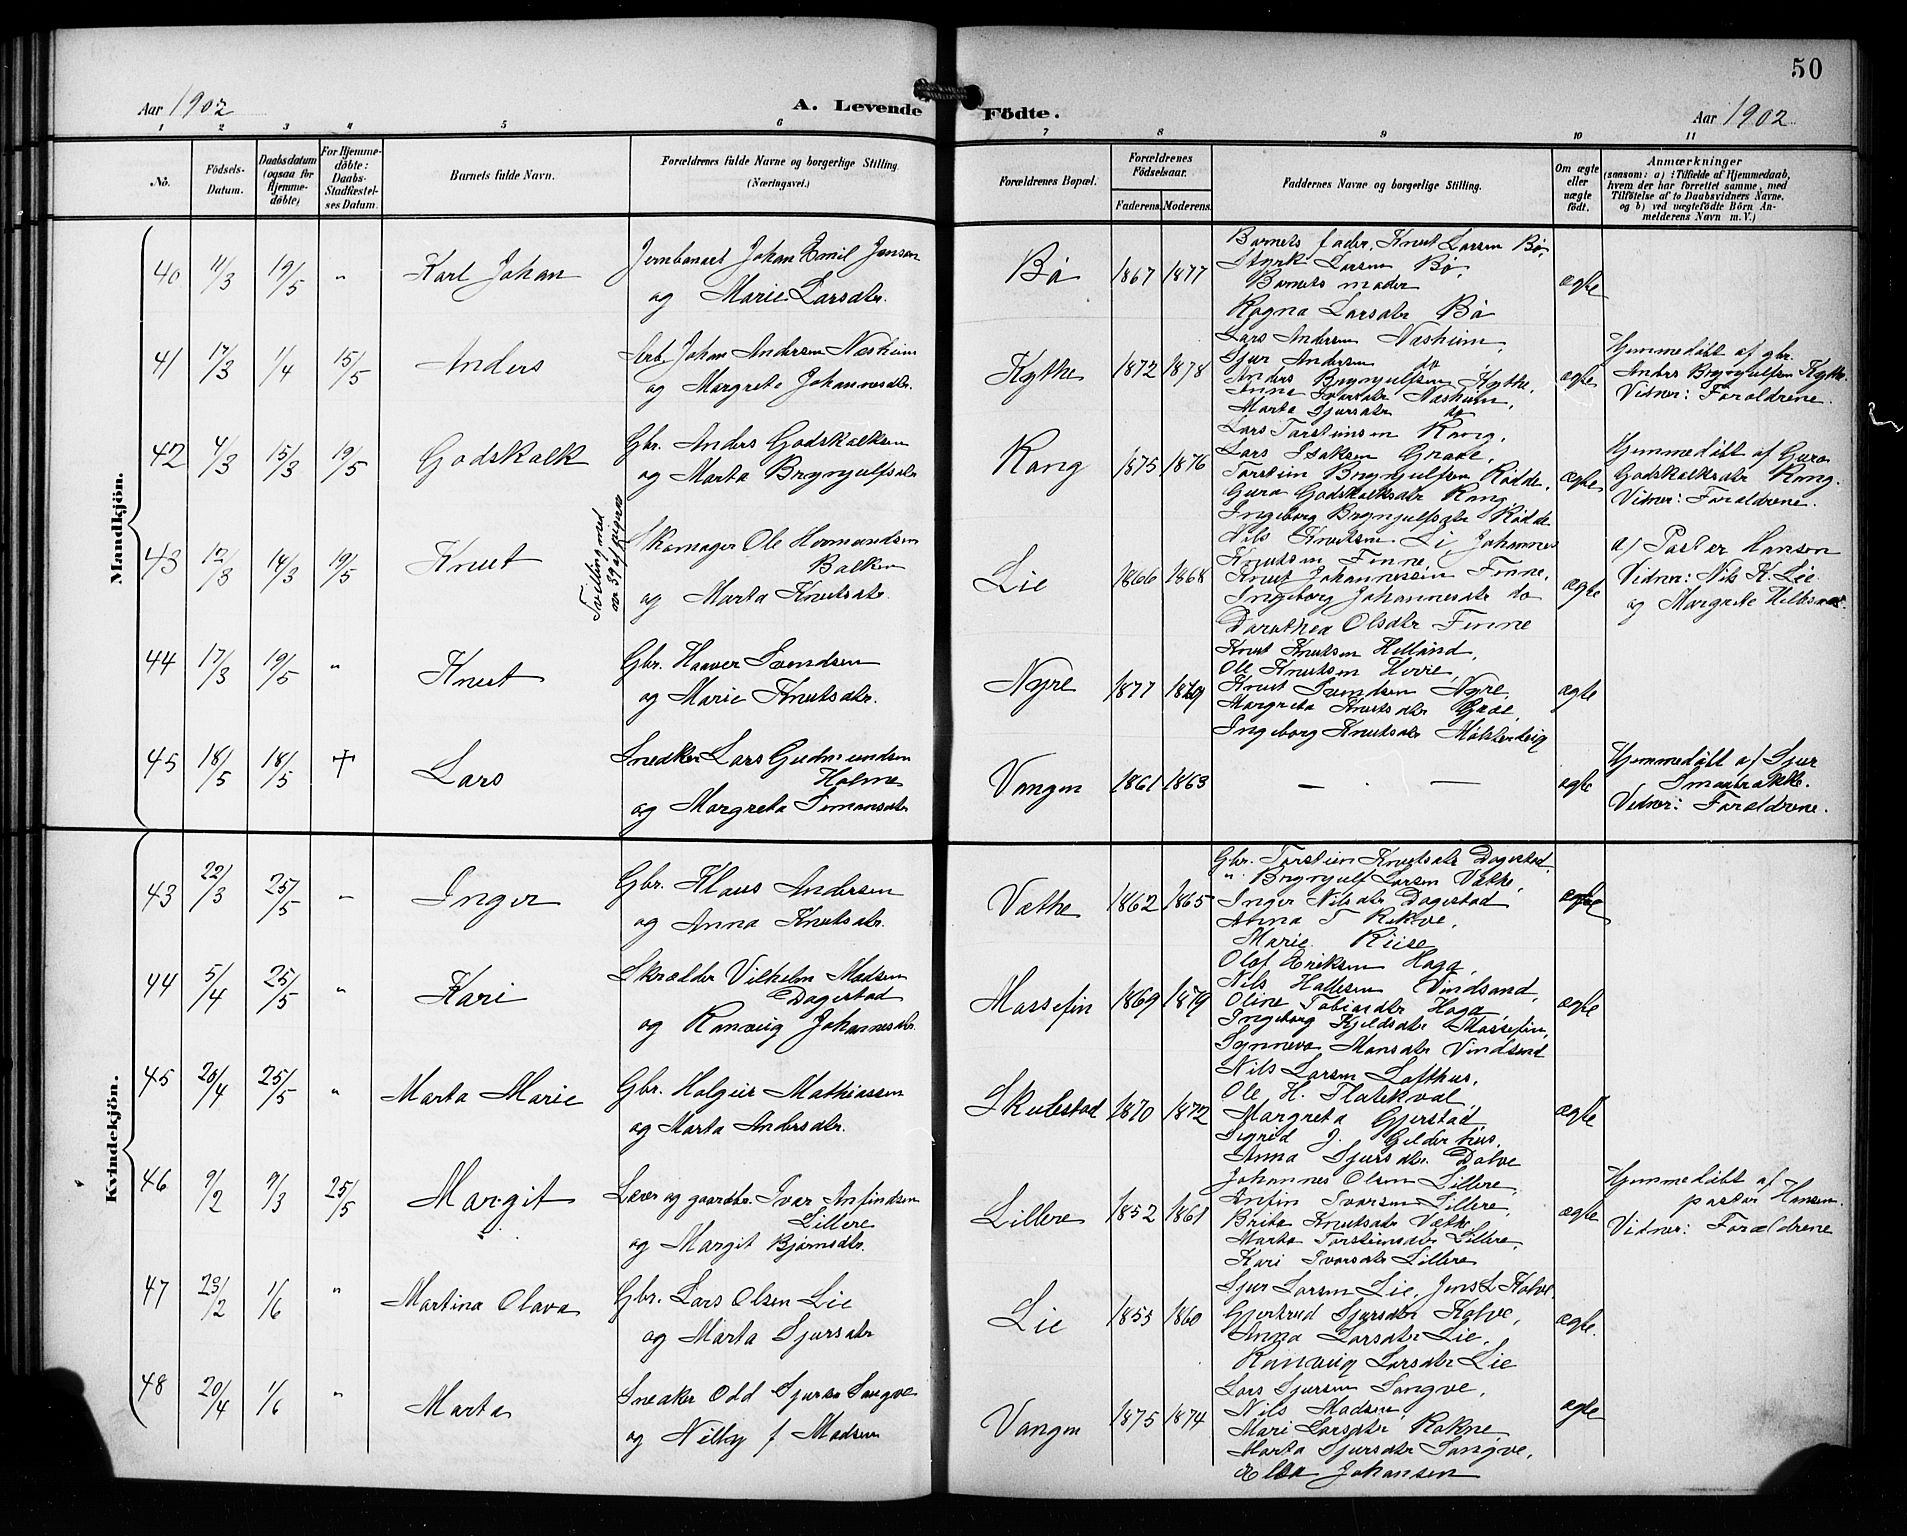 50
Aar 1902
A. Levende
Födte.
Aar 1902
1 2 3 4 5 6 7 8 9 10 11
No.
Födsels-
Datum.
Daabsdatum
(ogsaa for
Hjemme-
döbte)
For Hjemme-
döbte:
Daabs-
Stadfæstel-
ses Datum.
Barnets fulde Navn.
Forældrenes fulde Navne og borgerlige Stilling.
(Næringsvei.)
Forældrenes Bopæl.
Forældrenes
Födselsaar.
Faderens. Moderens.
Faddernes Navne og borgerlige Stilling.
Om ægte
eller
uægte
födt.
Anmærkninger
(saasom: a) i Tilfælde af Hjemmedaab,
hvem der har forrettet samme, med
Tilföielse af to Daabsvidners Navne,
og b) ved uægtefödte Börn An-
melderens Navn m. V.)
Mandkjön.
40 11/3 19/5 " Karl Johan
Jernbanearb. Johan Emil Jenson
og Marie Larsdtr.
Bø 1867 1877
Barnets fader, Knut Larsen Bø,
Styrk Larsen Bø,
Barnets moder
Ragna Larsdtr Bø
ægte
41 17/3 1/4 15/5 Anders
Arb. Johan Andersen Næsheim
og Margreta Johannesdtr.
Kythe 1872 1878
Lars Andersen Næsheim,
Sjur Andersen do
Anders Brynjulfsen Kythe,
Anna Iversdtr Næsheim,
Marta Sjursdtr do
ægte
Hjemmedøbt af gbr.
Anders Brynjulfsen Kythe.
Vidner: Forældrene.
42 4/3 15/3 19/5 Godskalk
Gbr. Anders Godskalksen
og Marta Brynjulfsdtr
Rang 1875 1876
Lars Torsteinsen Rang,
Lars Isaksen Graue,
Torstein Brynjulfsen Rødde,
Guro Godskalksdtr Rang,
Ingeborg Brynjulfsdtr Rødde
ægte
Hjemmedøbt af Guro
Godskalksdtr Rang.
Vidner: Forældrene.
43 12/3 14/3 19/5 Knut
Tvilling med
no. 39 af pigerne
Skomager Ole Hermundsen
Balken
og Marta Knutsdtr.
Lie 1866 1868
Nils Knutsen Li, Johannes
Knutsen Finne,
Knut Johannessen Finne,
Ingeborg Johannesdtr do
Dorothea Olsdtr Finne
ægte
af Pastor Hansen
Vidner: Nils K. Lie
og Margrete
44 17/3 19/5 " Knut
Gbr. Haaver Svendsen
og Marie Knutsdtr.
Nyre 1877 1869
Knut Knutsen Helland,
Ole Knutsen
Knut Svendsen Nyre,
Margreta Knutsdtr
Ingeborg Knutsdtr
ægte
45 18/5 18/5 † Lars
Snedker Lars Gudmundsen
Holme
og Margreta
Vangen 1861 1863
— . —
ægte
Hjemmedøbt af Sjur
Smørbrække.
Vidner: Forældrene.
Kvindekjön.
43 22/3 25/5 " Inger
Gbr. Klaus Andersen
og Anna Knutsdtr.
Væthe 1862 1865
Gbr. Torstein Knutsdtr Dagestad,
" Brynjulf Larsen Væthe,
Inger Nilsdtr Dagestad
Anna T Rekve,
Marie Riise
ægte
44 5/4 25/5 " Kari
Skrædder Vilhelm Madsen
Dagestad
og Ranveig Johannesdtr
Mossefin 1869 1879
Olaf Eriksen Haga,
Nils Hallesen Vindsand,
Oline Tobiasdtr Haga,
Ingeborg Kjeldsdtr Mossefin,
Synneva Monsdtr Vindsand
ægte
45 20/4 25/5 " Marta Marie
Gbr. Holgeir Mathiassen
og Marta Andersdtr.
Skulestad 1870 1872
Nils Larsen Lofthus,
Ole H. Flatekval,
Margreta Gjerstad,
Sigrid J. Gjelderhus,
Anna Sjursdtr Dolve
ægte
46 9/2 9/3 25/5 Margit
Lærer og gaardbr. Ivar Anfindsen
Lillere
og Margit Bjørnsdtr.
Lillere 1852 1861
Johannes Olsen Lillere,
Anfin Ivarsen Lillere,
Brita Knutsdtr Væthe
Marta Torsteinsdtr Lillere,
Kari Ivarsdtr Lillere
ægte
Hjemmedøbt af
pastor Hansen
Vidner: Forældrene
47 23/2 1/6 " Martina Olava
Gbr. Lars Olsen Lie
og Marta Sjursdtr
Lie 1855 1860
Sjur Larsen Lie, Jens L Kolve
Gjertrud Sjursdtr Kolve,
Anna Larsdtr Lie,
Ranveig Larsdtr Lie
ægte.
48 20/4 1/6 " Marta
Snedker Odd Sjursen Sangve
og Nilly f Madsen
Vangen 1875 1874
Lars Sjursen Sangve,
Nils Madsen,
Mari Larsdtr Rokne,
Marta Sjursdtr Sangve,
Elsa Johansen
ægte